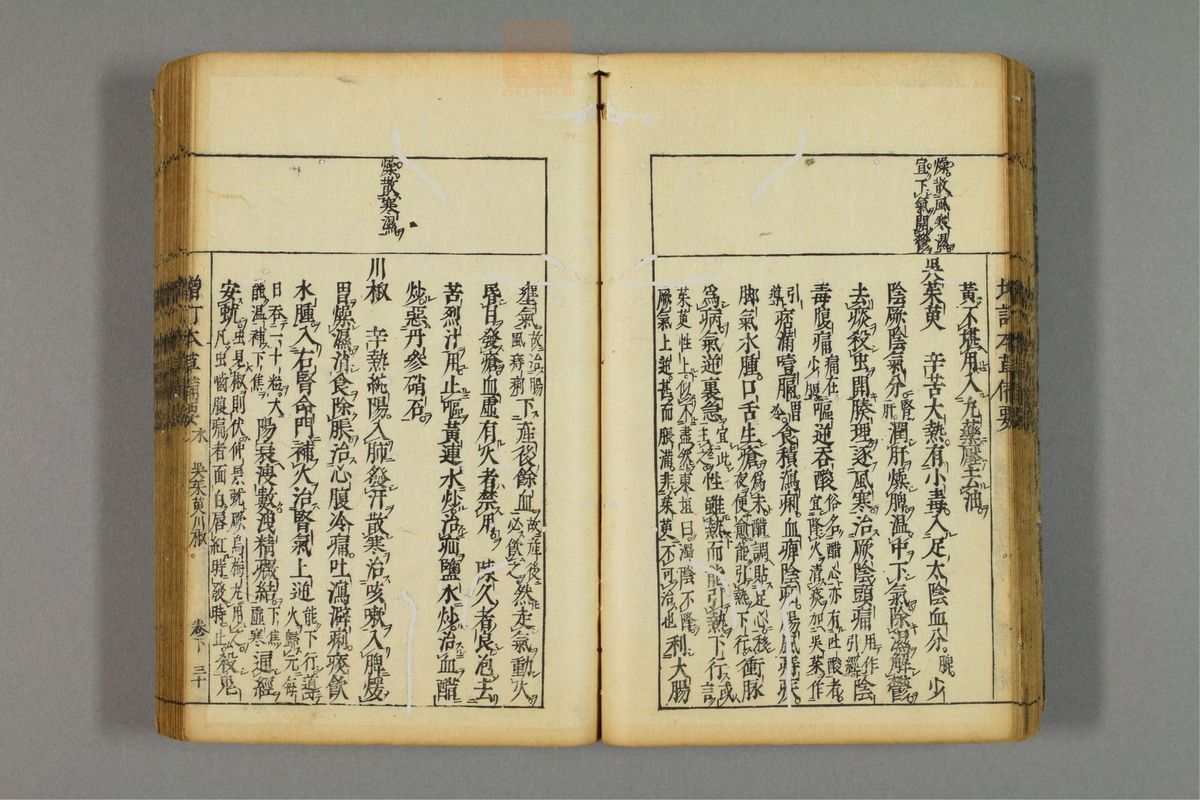 燥散風寒濕
宜下氣開鬱
增訂本草備要
黃不堪用入丸藥壓去油
吳茱萸 辛苦大熱有小毒入足太陰血分脾少
陰厥陰氣分腎肝潤肝燥脾溫中下氣除濕解鬱
去痰殺虫開腠理逐風寒治厥陰頭痛用作引經陰
毒腹痛痛在少腹嘔逆吞酸俗名醋心亦有吐酸者宜降火清痰加吳茱作
引導痞滿噎膈胃冷食積瀉痢血痺陰疝腸風痔疾
脚氣水腫口舌生瘡為末醋調貼足心移夜便愈能引熱下行衝脈
為病氣逆裏急宜此主之性雖熱而能引熱下行或言
茱萸性上似不盡然東垣曰濁陰不降厥氣上逆甚而脹滿非茱萸不可治也利大腸
燥散寒濕
壅氣故治腸風痔痢下產後餘血故產後必飲之然走氣動火
昏目發瘡血虛有火者禁用 陳久者良泡去
苦烈汁用止嘔黃連水炒治疝鹽水炒治血醋
炒惡丹參硝石
川椒 辛熱純陽入肺發汗散寒治咳嗽入脾煖
胃燥濕消食除脹治心腹冷痛吐瀉澼痢痰飲
水腫入右腎命門補火治腎氣上逆能下行導火歸元每
日吞二十粒大能溫補下焦陽衰溲數洩精癥結下焦虛寒通經
安蚘虫見椒則伏仲景蚘厥烏梅丸用之凡虫嚙腹痛者面白唇紅時發時止殺鬼
增訂本草備要 木 吳茱萸川椒 卷下 三十